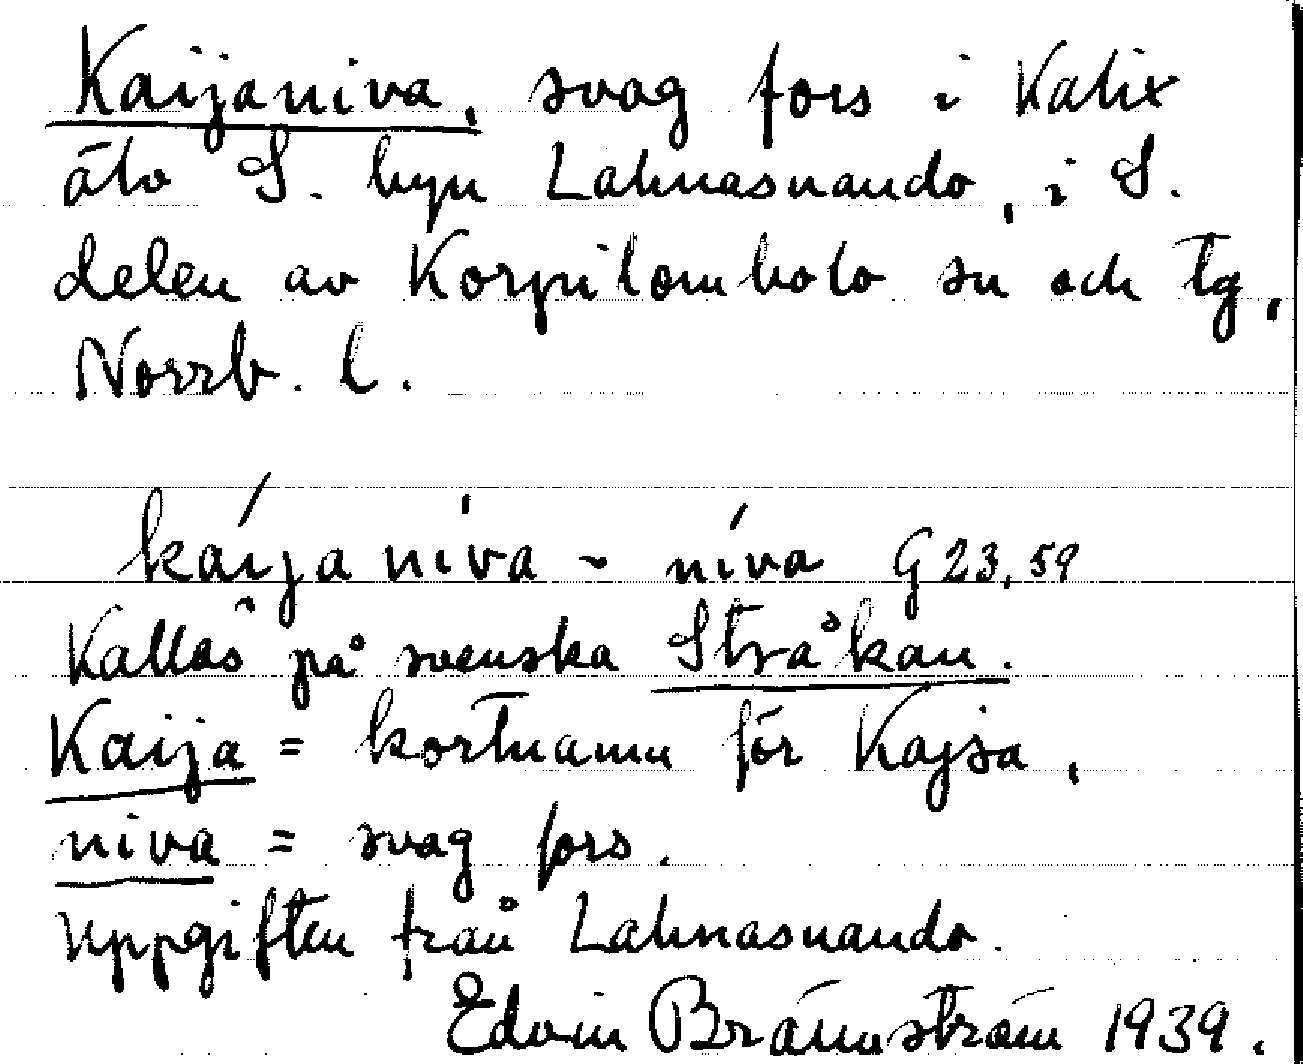 Kaijaniva, svag fors i Kalix
älv S. byn Lahnasuando, i S.
delen av Korpilombolo sn och tg,
Norrb. l.
káijaníva ~ níva G 23,59
Kallas på svenska Stråkan.
Kaija = kortnamn för Kajsa,
niva = svag fors.
Uppgiften från Lahnasuando.
Edvin Brännström 1939.